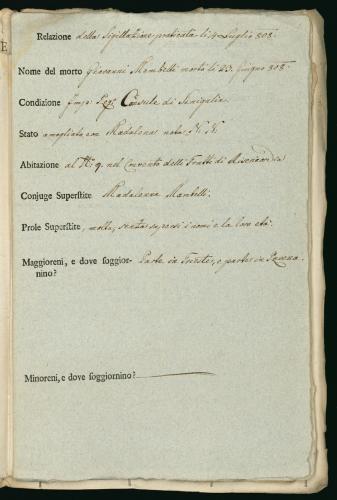 Relazione della Sigillazione praticata li 4 Luglio 808.
Nome del morto Giovanni Mambelli morto li 23. Giugno 808.
Condizione Console di Sinigalia.
Stato amogliato con Madalena nata N. N.
Abitazione al N. 9. nel Convento delli Fratti di Misericordia
Conjuge Superstite Madalena Mambelli.
Prole Superstite, molta, senza sapersi i nomi e la loro età.
Maggioreni, e dove soggior- Parte in Trieste, e parte in
nino?
Minoreni, e dove soggiornino?